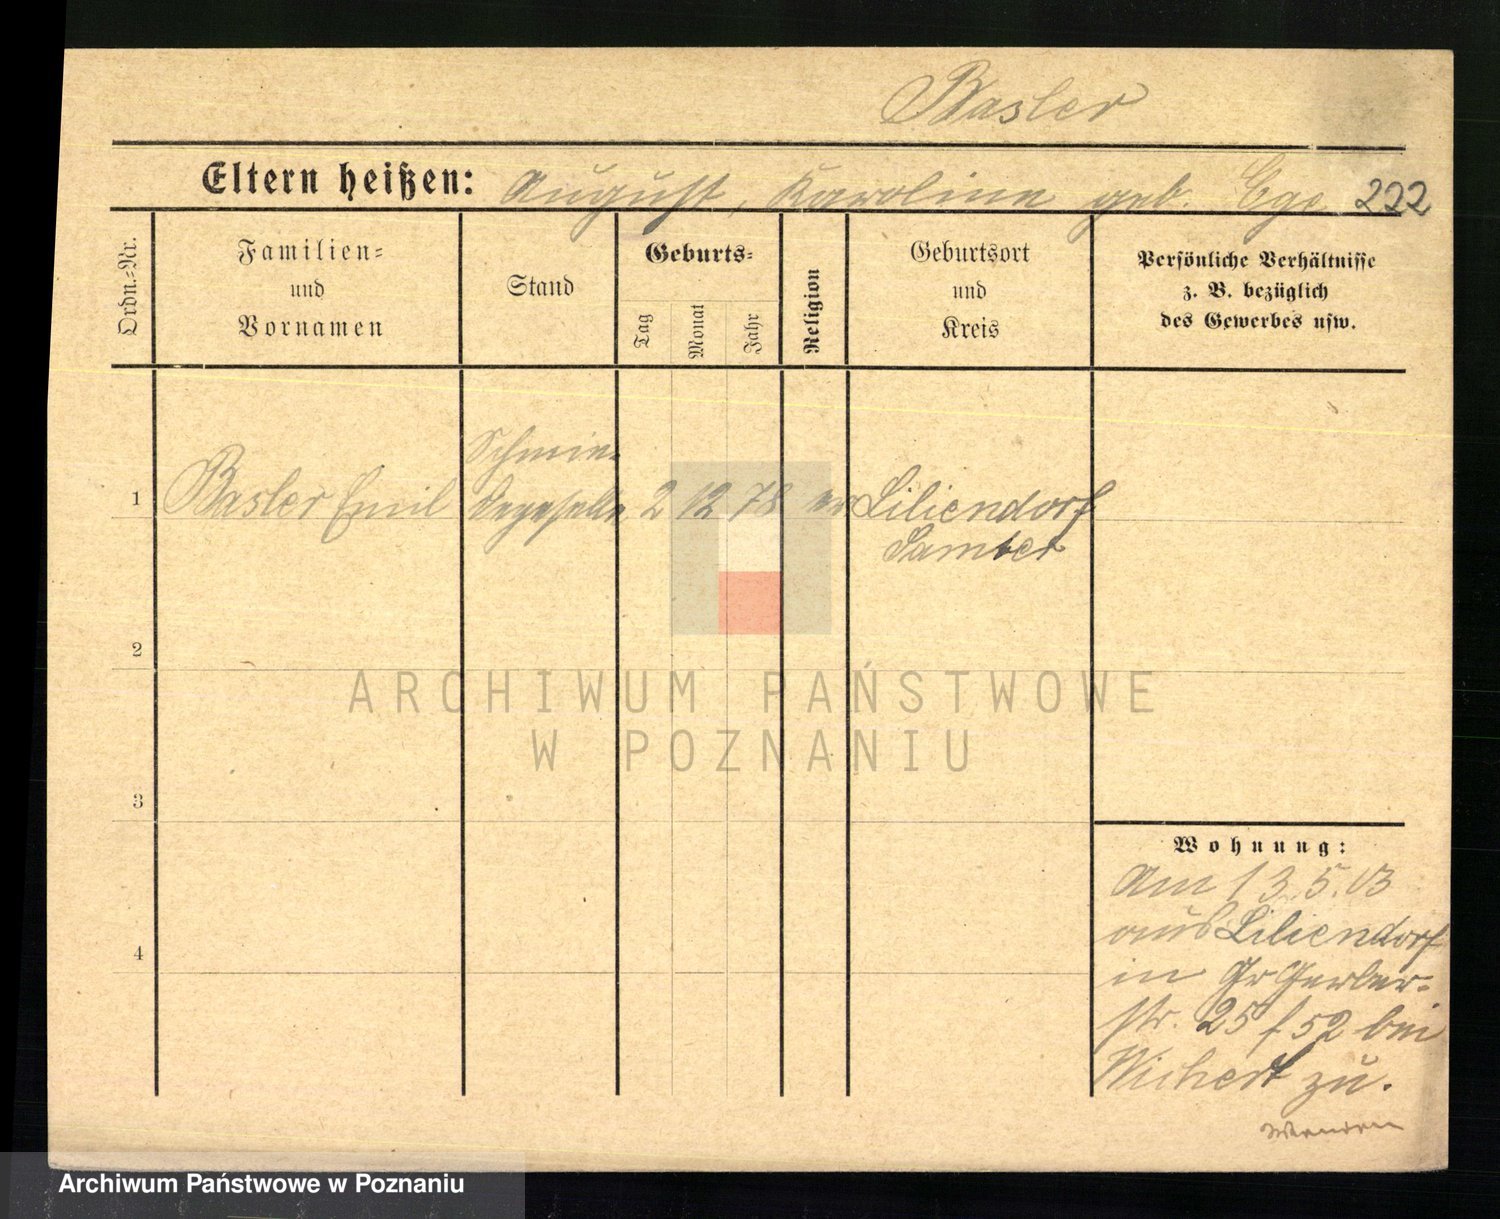 Basler
Eltern heißen: August, Karoline geb. Ege 222
Ordn.-Nr.
Familien-
und
Vornamen
Stand
Geburts-
Tag
Monat
Jahr
Religion
Geburtsort
und
Kreis
Persönliche Verhältnisse
z. B. bezüglich
des Gewerbes usw.
Schmie-
1 Basler Emil degeselle 2 12 78 ev Liliendorf
Samter
2
ARCHIWUM PAŃSTWOWE
W POZNANIU
3
Wohnung:
Am 13.5.03
aus Liliendorf
4
in Gr Gerber-
str. 25 f 52 bei
Wichert zu.
Wenden
Archiwum Państwowe w Poznaniu